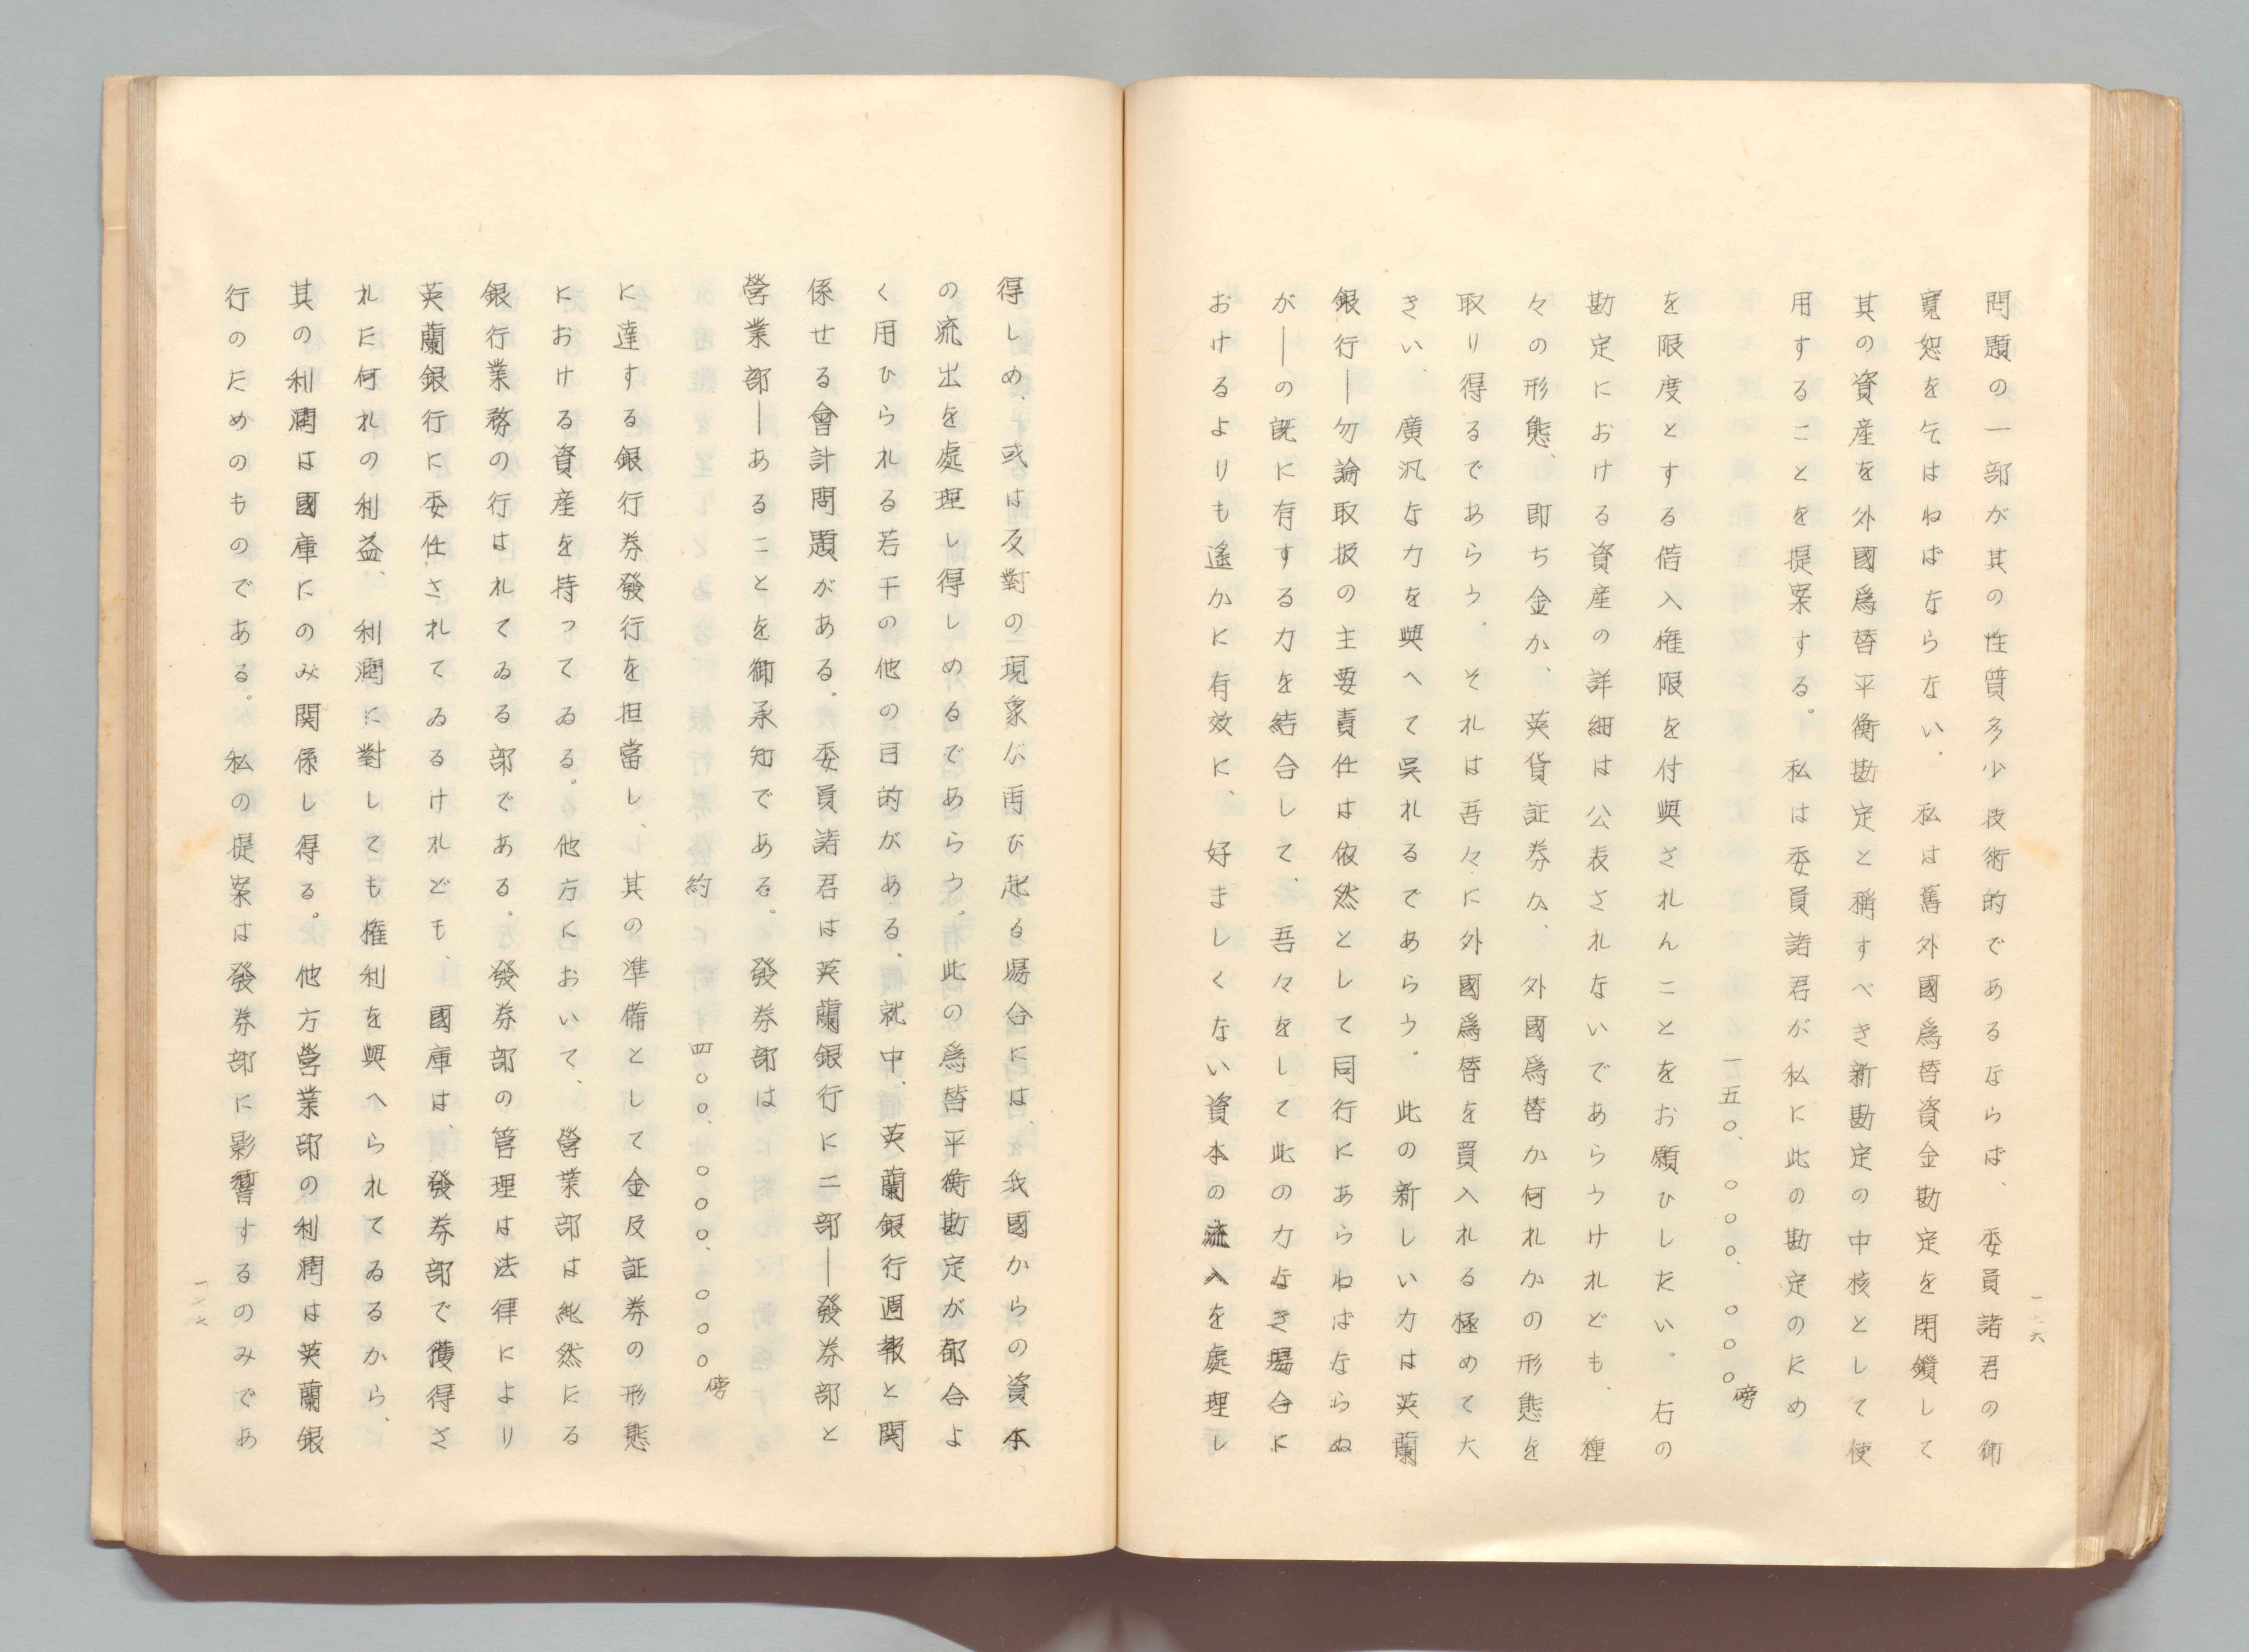 問題の一部が其の性質多少技術的であるならば、委員諸君の御
寛恕を乞はねばならない。私は舊外國爲替資金勘定を閉鎖して
其の資産を外國爲替平衡勘定と稱すべき新勘定の中核として使
用することを提案する。私は委員諸君が私に此の勘定のため
一五〇、〇〇〇、〇〇〇磅
を限度とする借入権限を付與されんことをお願ひしたい。右の
勘定における資産の詳細は公表されないであらうけれども、種
々の形態、即ち金か、英貨証券か、外國爲替か何れかの形態を
取り得るであらう。それは吾々に外國爲替を買入れる極めて大
きい、廣汎な力を與へて呉れるであらう。此の新しい力は英蘭
銀行―勿論取扱の主要責任は依然として同行にあらねばならぬ
が―の既に有する力を結合して、吾々をして此の力なき場合に
おけるよりも遙かに有效に、好ましくない資本の流入を處理し
一六
得しめ、或は反對の現象が再び起る場合には、我國からの資本
の流出を處理し得しめるであらう。此の爲替平衡勘定が都合よ
く用ひられる若干の他の目的がある、就中、英蘭銀行週報と関
係せる會計問題がある。委員諸君は英蘭銀行に二部―發券部と
營業部―あることを御承知である。發券部は
約四〇〇、〇〇〇、〇〇〇磅
に達する銀行券發行を担當し、其の準備として金及証券の形態
における資産を持ってゐる。他方において、營業部は純然たる
銀行業務の行はれてゐる部である。發券部の管理は法律により
英蘭銀行に委任されてゐるけれども、國庫は、發券部で獲得さ
れた何れの利益、利潤に對しても権利を與へられてゐるから、
其の利潤は國庫にのみ関係し得る。他方營業部の利潤は英蘭銀
行のためのものである。私の提案は發券部に影響するのみであ
一七